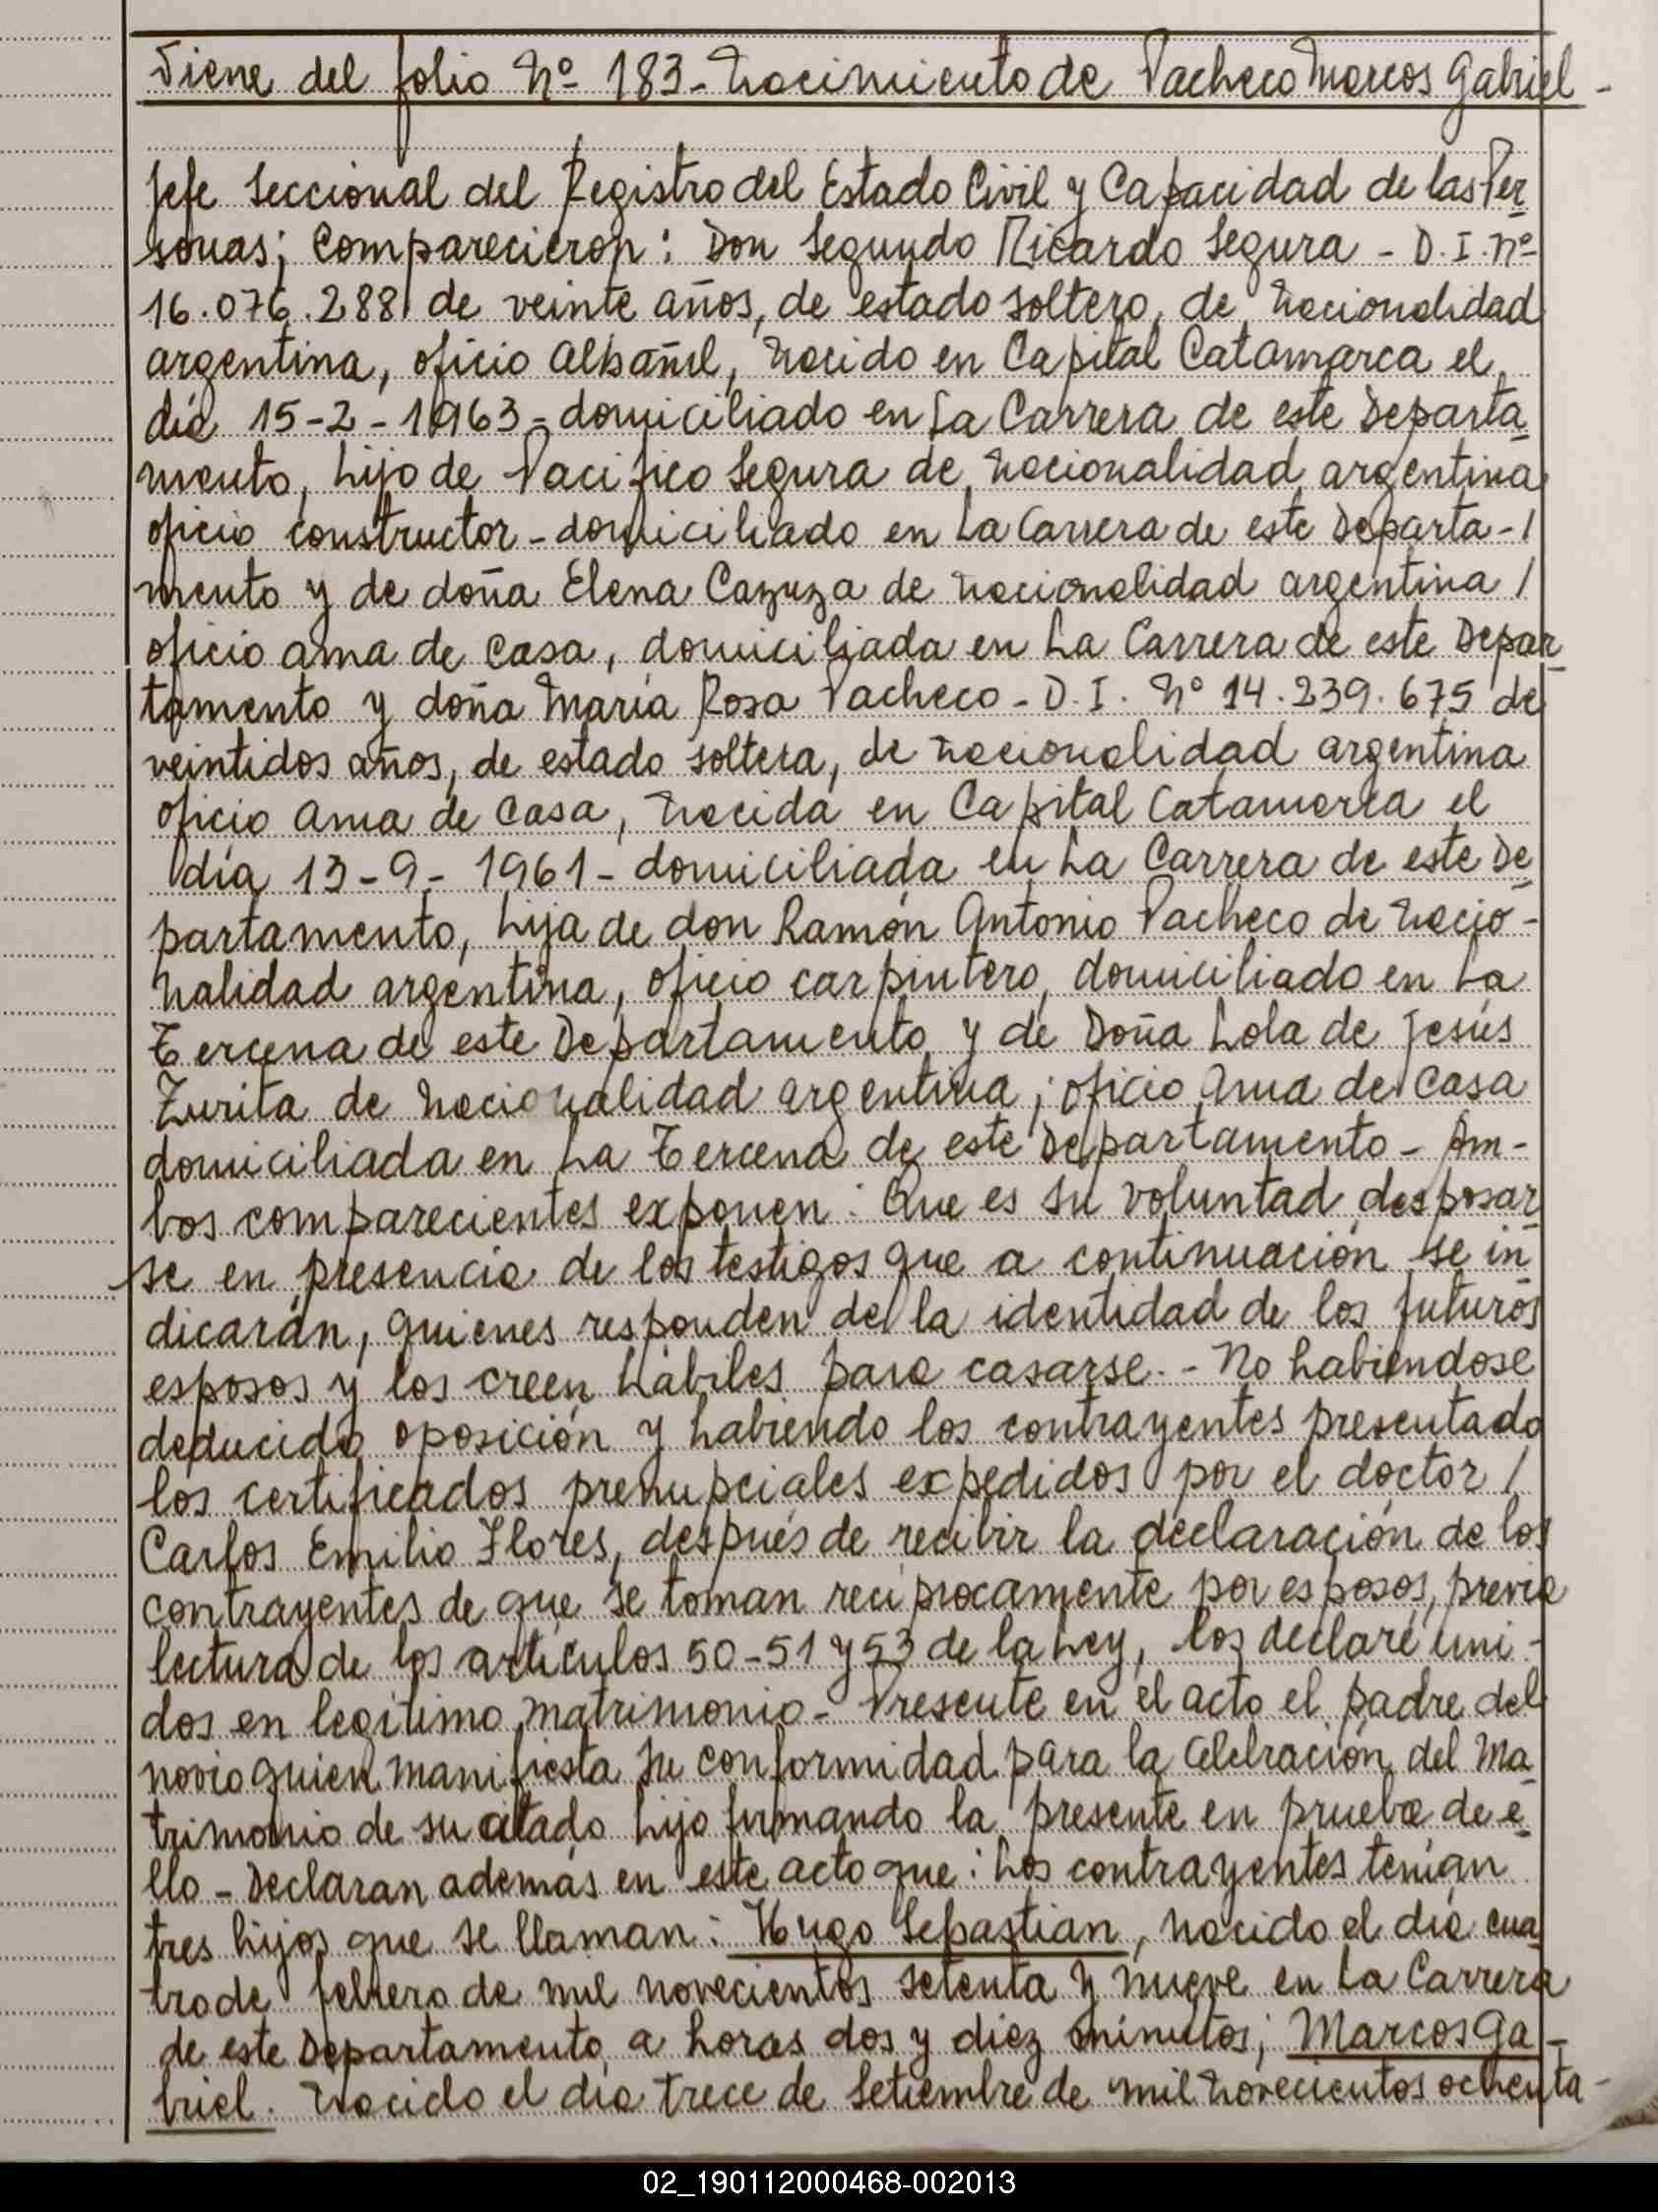 Viene del folio Nº 183 - Nacimiento de Pacheco Marcos Gabriel -
Jefe Seccional del Registro del Estado Civil y Capacidad de las Per
sonas; Comparecieron: Don Segundo Ricardo Segura - D.I. Nº
16.076.288 de veinte años, de estado soltero, de nacionalidad
argentina, oficio albañil, nacido en Capital Catamarca el
día 15-2-1963 - domiciliado en La Carrera de este Departa
mento, hijo de Pacifico Segura de nacionalidad argentina
oficio constructor - domiciliado en La Carrera de este Departa-/
mento y de doña Elena Cazuza de nacionalidad argentina /
oficio ama de casa, domiciliada en La Carrera de este Depar
tamento y doña María Rosa Pacheco - D.I. Nº 14.239.675 de
veintidos años, de estado soltera, de nacionalidad argentina
oficio ama de casa, nacida en Capital Catamarca el
día 13-9-1961 - domiciliada en La Carrera de este De
partamento, hija de don Ramón Antonio Pacheco de nacio-
nalidad argentina, oficio carpintero, domiciliado en La
Tercena de este Departamento y de Doña Lola de Jesús
Zurita de nacionalidad argentina; oficio Ama de Casa
domiciliada en La Tercena de este Departamento - Am-
bos comparecientes exponen: Que es su voluntad desposar
se en presencia de los testigos que a continuación se in
dicarán, quienes responden de la identidad de los futuros
esposos y los creen hábiles para casarse. - No habiendose
deducido oposición y habiendo los contrayentes presentado
los certificados prenupciales expedidos por el doctor /
Carlos Emilio Flores, después de recibir la declaración de los
contrayentes de que se toman reciprocamente por esposos, previa
lectura de los artículos 50-51 y 53 de la Ley, los declaré uni-
dos en legítimo matrimonio - Presente en el acto el padre del
novio quien manifiesta su conformidad para la celebración del Ma
trimonio de su citado hijo firmando la presente en prueba de e
llo - Declaran además en este acto que: Los contrayentes tenían
tres hijos que se llaman: Hugo Sebastian, nacido el día cua
tro de febrero de mil novecientos setenta y nueve en La Carrera
de este Departamento a horas dos y diez minutos; Marcos Ga-
briel. Nacido el día trece de Setiembre de mil novecientos ochenta-
02_190112000468-002013